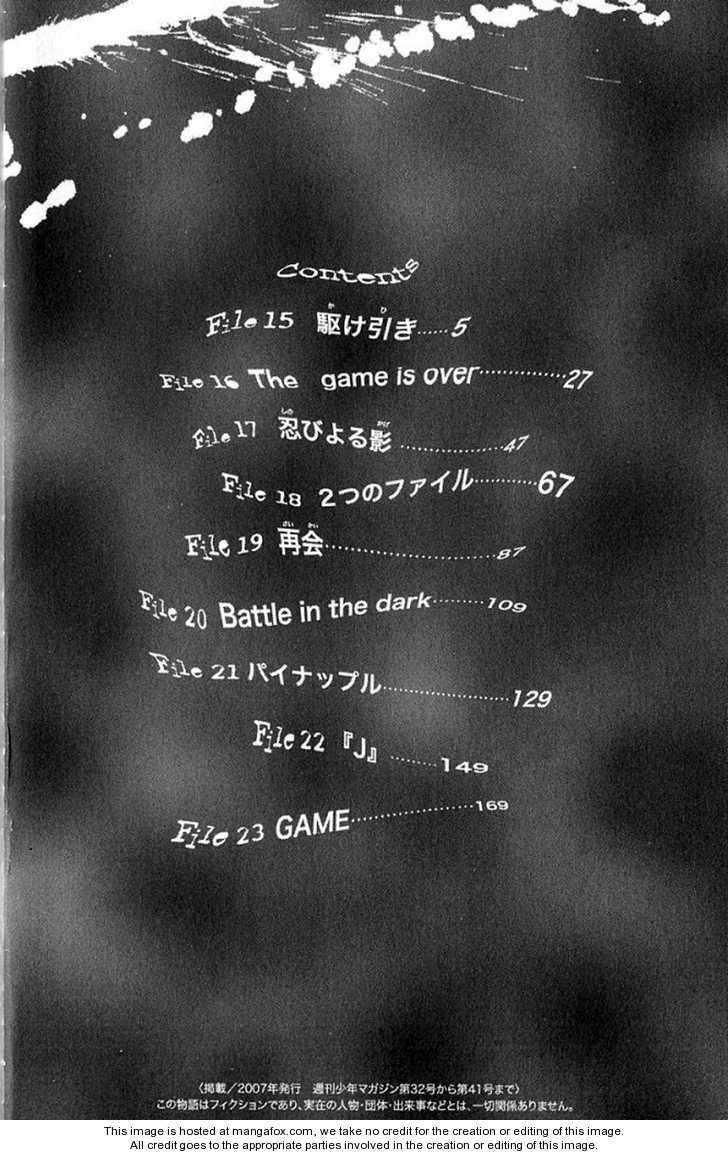 Contents
File 15 駆け引き……5
File 16 The game is over……………27
File 17 忍びよる影……………47
File 18 2つのファイル………67
File 19 再会…………………87
File 20 Battle in the dark………109
File 21 パイナップル………………129
File 22 『J』………149
File 23 GAME………………169
〈掲載/2007年発行 週刊少年マガジン第32号から第41号まで〉
この物語はフィクションであり、実在の人物・団体・出来事などとは、一切関係ありません。
This image is hosted at mangafox.com, we take no credit for the creation or editing of this image.
All credit goes to the appropriate parties involved in the creation or editing of this image.